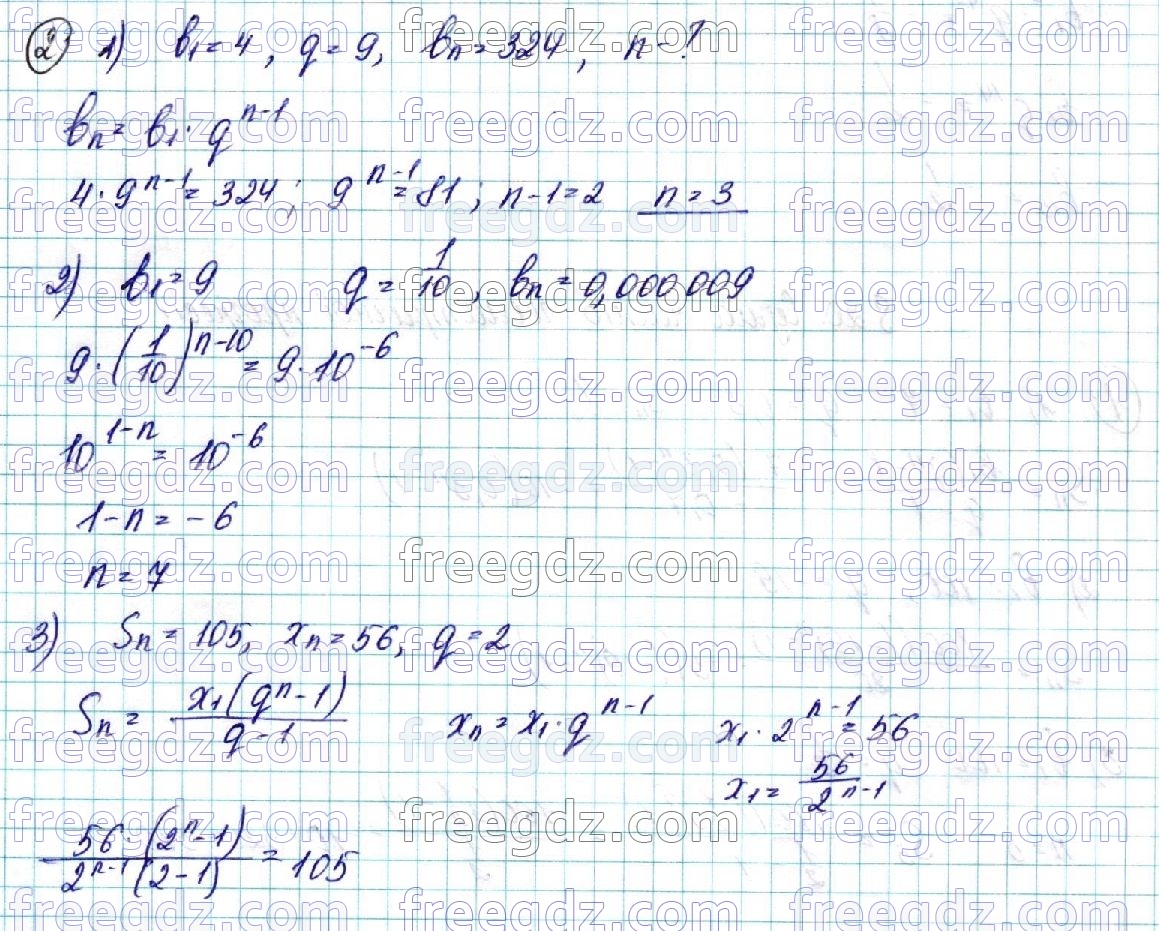 2 1) b₁ = 4, q = 9, bₙ = 324, n - ?
bₙ = b₁ · qⁿ⁻¹
4 · 9ⁿ⁻¹ = 324; 9ⁿ⁻¹ = 81; n-1 = 2 n = 3
2) b₁ = 9 q = 1/10, bₙ = 0,000009
9 · (1/10)ⁿ⁻¹⁰ = 9 · 10⁻⁶
10¹⁻ⁿ = 10⁻⁶
1-n = -6
n = 7
3) Sₙ = 105, xₙ = 56, q = 2
Sₙ = x₁(qⁿ-1)/(q-1) xₙ = x₁ · qⁿ⁻¹ x₁ · 2ⁿ⁻¹ = 56
x₁ = 56/2ⁿ⁻¹
56 (2ⁿ-1)/2ⁿ⁻¹(2-1) = 105
freegdz.com